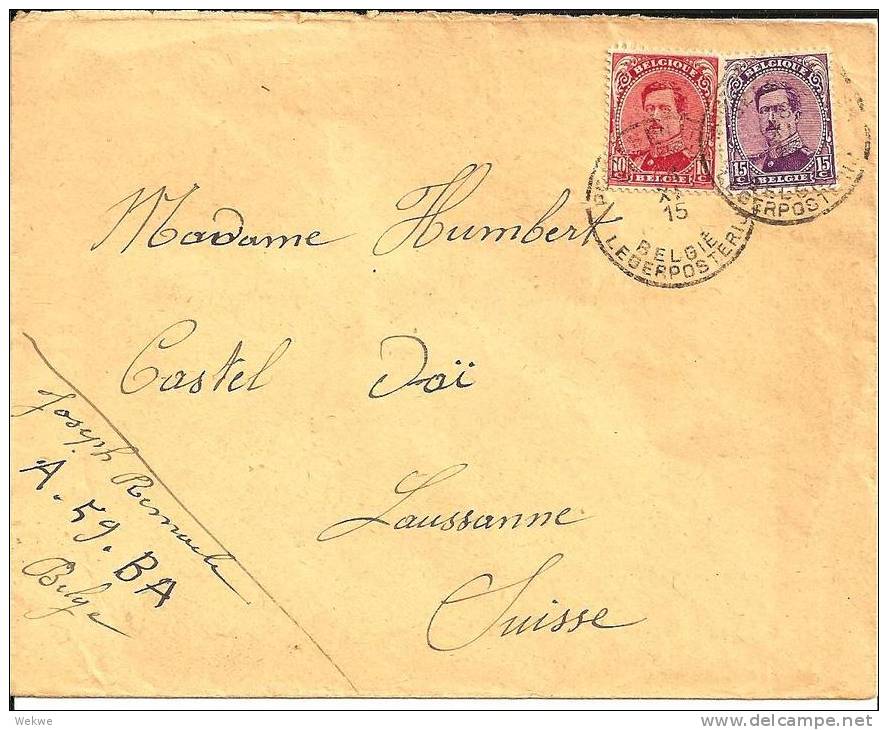 BELGIQUE BELGIQUE
10 1
C
BELGIE
15 15
C C
BELGIE
XI
15
BELGIË
LEGERPOSTERIJ
LEGERPOSTERIJ
Madame Humbert
Castel Doï
Laussanne
Suisse
Joseph
A. 59. BA
Belge
Wekwe
www.delcampe.net